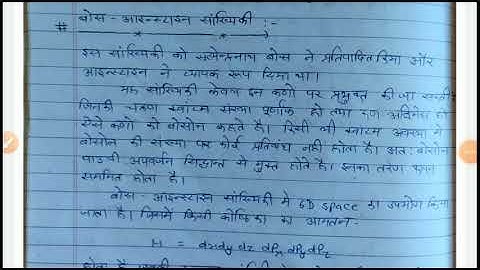 # बोस - आइन्स्टाइन सांख्यिकी :-
इस सांख्यिकी को सत्येन्द्रनाथ बोस ने प्रतिपादित किया और
आइन्स्टाइन ने व्यापक रूप दिया था।
यह सांख्यिकी केवल इन कणों पर प्रयुक्त की जा सकती
जिनकी चक्रण क्वांटम संख्या पूर्णांक हो तथा
ऐसे कणों को बोसोन कहते है। किसी भी क्वांटम अवस्था में
बोसोन की संख्या पर कोई प्रतिबंध नही होता है। अतः बोसोन
पाउली अपवर्जन सिद्धान्त से मुक्त होते है। इनका तरंग फलन
सममित होता है।
बोस - आइन्स्टाइन सांख्यिकी में 6D space का उपयोग किया
जाता है। जिसमें किसी कोष्ठिका का आयतन-
H = dxdy dz dPx dPy dPz
होता है